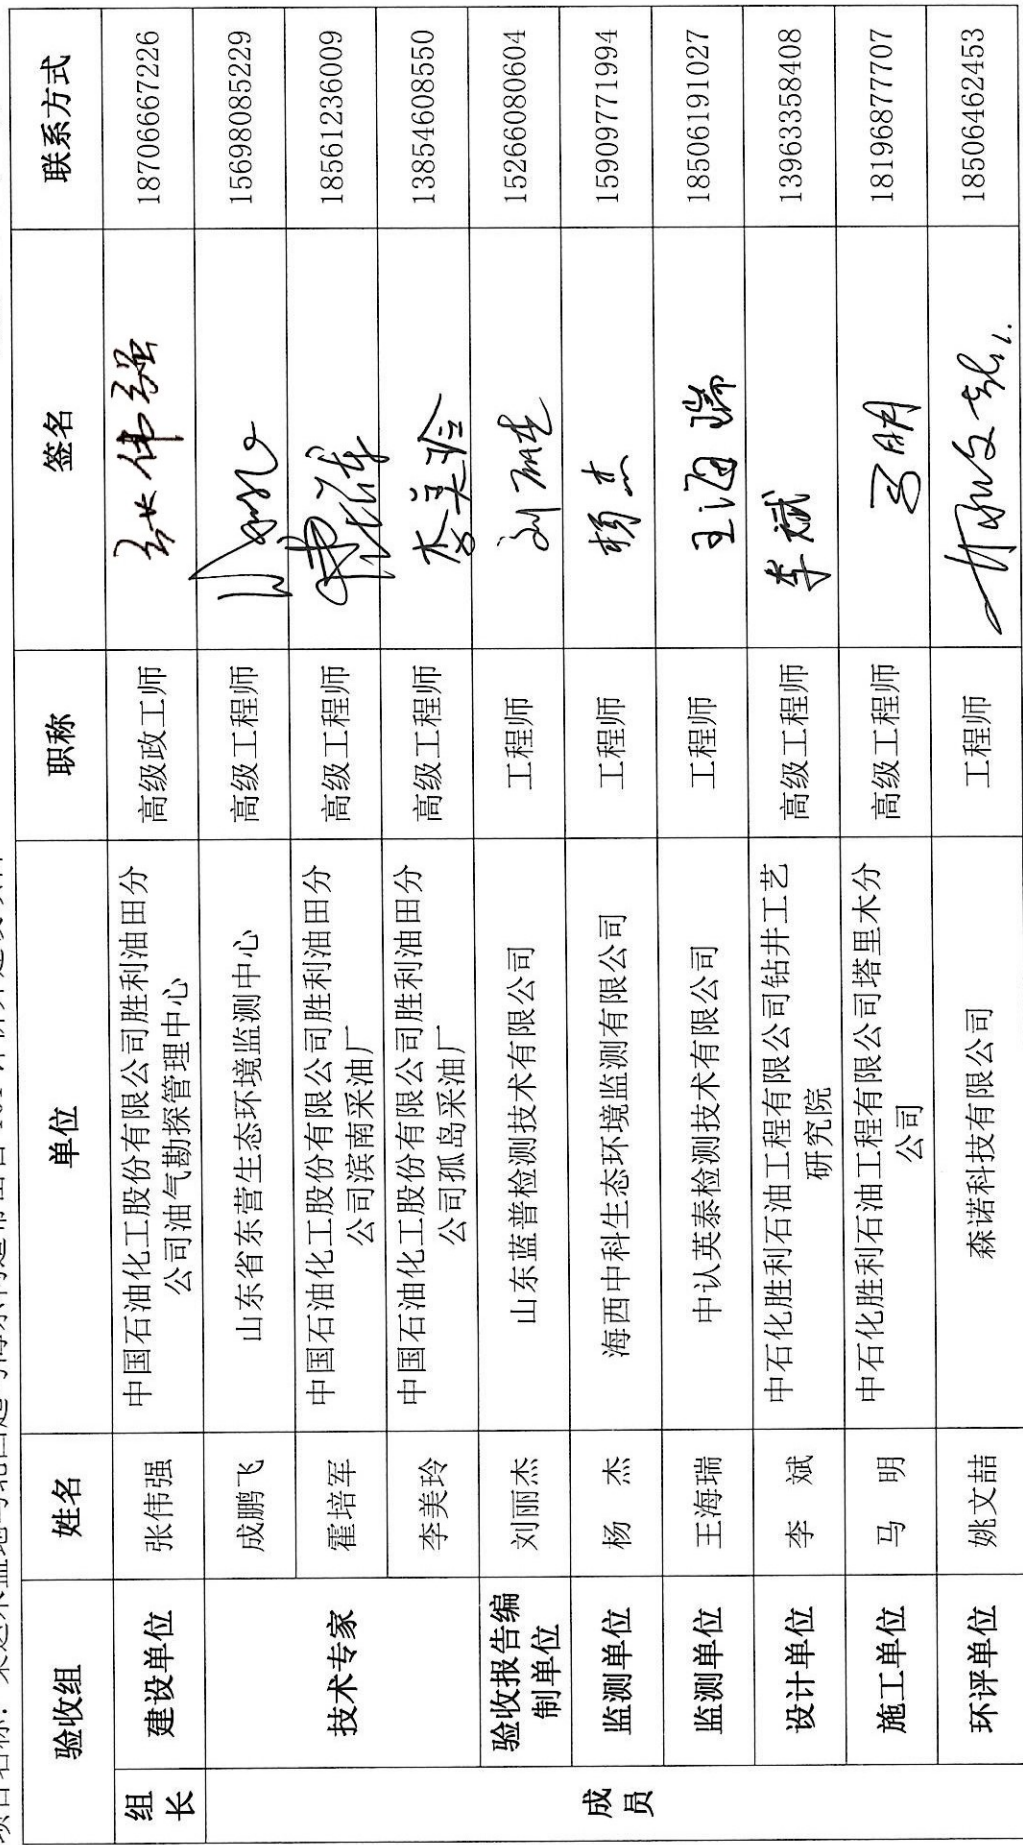 验收组 姓名 单位 职称 签名 联系方式
组长 建设单位 张伟强 中国石油化工股份有限公司胜利油田分公司油气勘探管理中心 高级政工师 张伟强 18706667226
成员 技术专家 成鹏飞 山东省东营生态环境监测中心 高级工程师 15698085229
霍培军 中国石油化工股份有限公司胜利油田分公司滨南采油厂 高级工程师 18561236009
李美玲 中国石油化工股份有限公司胜利油田分公司孤岛采油厂 高级工程师 李美玲 13854608550
验收报告编制单位 刘丽杰 山东蓝普检测技术有限公司 工程师 刘丽杰 15266080604
监测单位 杨 杰 海西中科生态环境监测有限公司 工程师 杨杰 15909771994
监测单位 王海瑞 中认英泰检测技术有限公司 工程师 王海瑞 18506191027
设计单位 李 斌 中石化胜利石油工程有限公司钻井工艺研究院 高级工程师 李斌 13963358408
施工单位 马 明 中石化胜利石油工程有限公司塔里木分公司 高级工程师 马明 18196877707
环评单位 姚文喆 森诺科技有限公司 工程师 18506462453